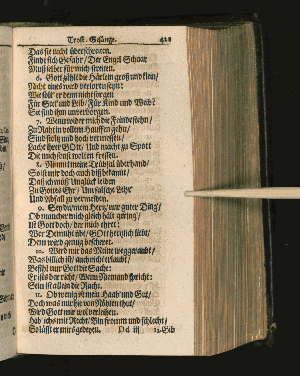 Trost-Gesänge. 421
Das sie nicht überschwatzen.
Findt sich Gefahr/ Der Engel Schaar
Muß selber für mich streiten.
6. Gott zählt die Härlein groß und klein/
Nicht eines wird verloren seyn:
Wie solt' er denn nicht sorgen
Für Gut und Leib/ Für Kind und Weib?
Sie sind ihm unverborgen.
7. Wenn wider mich die Feinde stehn/
Zu Rath in vollem Hauffen gehn/
Sind stoltz und hoch vermessen/
Lacht ihrer GOtt/ Und macht zu Spott
Die mich sonst wollen fressen.
8. Nimmt meine Trübsal überhand/
So ist mir doch auch diß bekannt/
Daß ich muß Unglück leiden
Zu Gottes Ehr/ Um falsche Lehr
Und Abfall zu vermeiden.
9. Sey du mein Hertz nur guter Ding/
Ob mancher mich gleich hält gering/
Ist Gott doch/ der mich ehret:
Wer Demuth übt/ GOtt hertzlich liebt/
Dem wird genug bescheret.
10. Wird mir das Meine weggeraubt/
Was billich ist/ auch nicht erlaubt/
Befihl nur Gott die Sache:
Er ists der richt/ Wenn Niemand spricht:
Sein ist allein die Rache.
11. Ob wenig in mein Haus und Gut/
Doch was mir hie von Nöhten thut/
Wird Gott mir wol verleihen.
Hab' ichs mit Recht/ Bin fromm und schlecht/
So läßt er mirs gedeyen. Dd iij 12. Gib